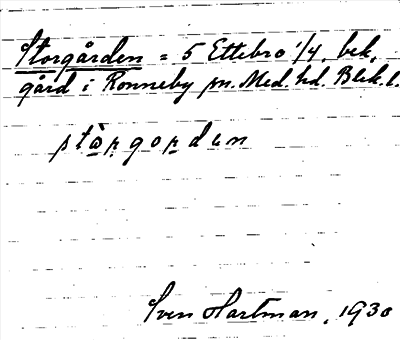 Storgården = 5 Ettebro 1/4, bek.
gård i Ronneby sn. Med. hd. Blek. l.
stàrgorden
Sven Hartman, 1930